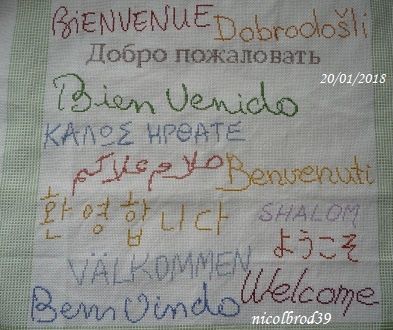 BiENVENUE Dobrodošli
Добро пожаловать
20/01/2018
Bien Venido
ΚΑΛΩΣ ΗΡΘΑΤΕ
صلام علاكم Benvenuti
환영합니다 SHALOM
ようこそ
VÄLKOMMEN
Bem Vindo Welcome
nicolbrod39